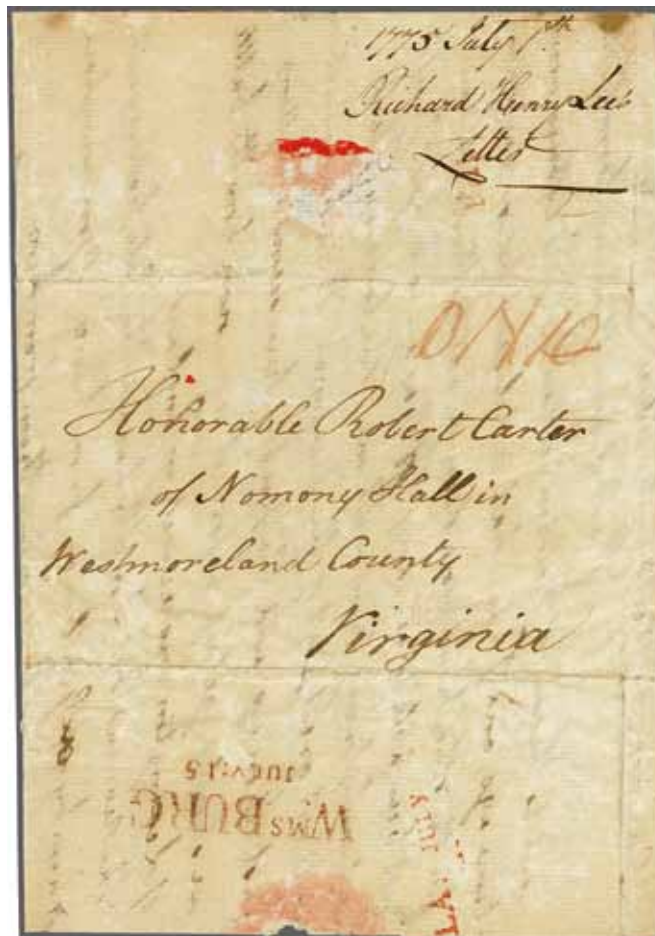 1775 July 1th
Richard Henry Lee's
Letter
Honorable Robert Carter
of Nomony Hall in
Westmoreland County
Virginia
JULY:15
WMS BURG
JULY